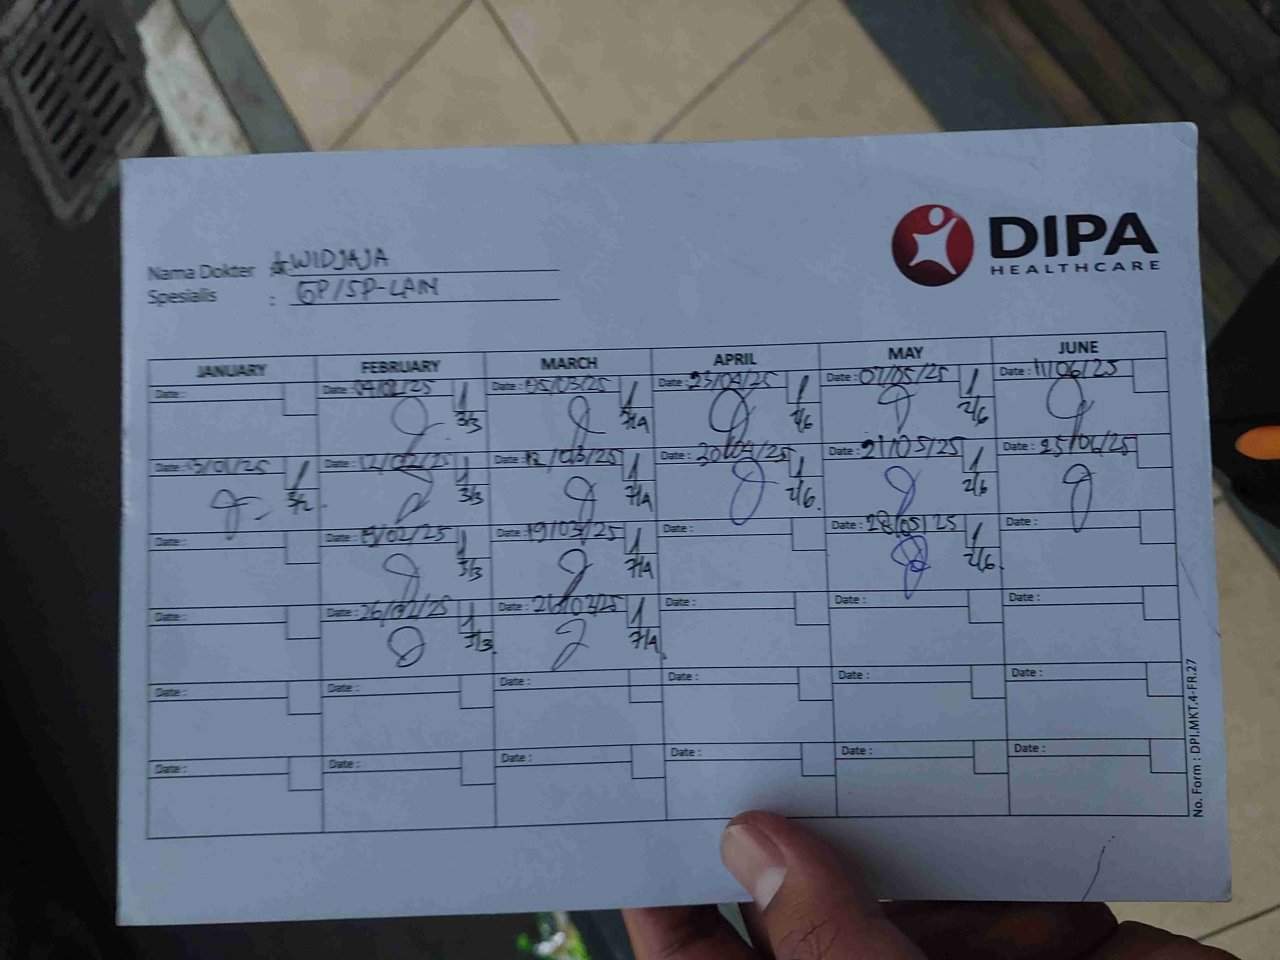 DIPA
HEALTHCARE
Nama Dokter : dr. WIDJAJA
Spesialis : GP/SP-LAIN
JANUARY FEBRUARY MARCH APRIL MAY JUNE
Date : Date : 04/02/25 1 3/3 Date : 05/03/25 1 7/4 Date : 23/04/25 1 2/6 Date : 07/05/25 1 2/6 Date : 11/06/25
Date : 1 3/2 Date : 12/02/25 1 3/3 Date : 12/03/25 1 7/4 Date : 30/04/25 1 2/6 Date : 21/05/25 1 2/6 Date : 25/06/25
Date : Date : 19/02/25 1 3/3 Date : 19/03/25 1 7/4 Date : Date : 28/05/25 1 2/6 Date :
Date : Date : 26/02/25 1 3/3 Date : 26/03/25 1 7/4 Date : Date : Date :
Date : Date : Date : Date : Date : Date :
Date : Date : Date : Date : Date : Date :
No. Form : DPI.MKT.4-FR.27